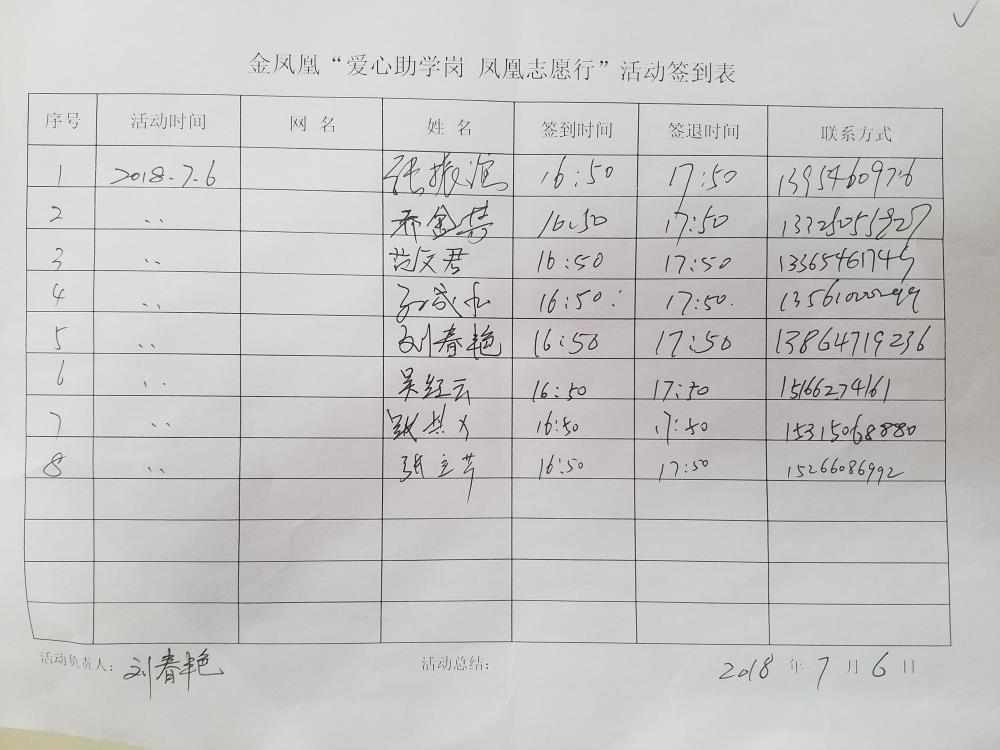 金凤凰“爱心助学岗 凤凰志愿行”活动签到表
序号 活动时间 网 名 姓 名 签到时间 签退时间 联系方式
1 2018.7.6 张振 16:50 17:50
2 〃 16:50 17:50
3 〃 范文君 16:50 17:50 13365461745
4 〃 16:50 17:50
5 〃 刘春艳 16:50 17:50 13864719236
6 〃 吴红云 16:50 17:50 15166274161
7 〃 张 16:50 17:50 15315068880
8 〃 张立芹 16:50 17:50 15266086992
活动负责人: 刘春艳 活动总结: 2018 年 7 月 6 日